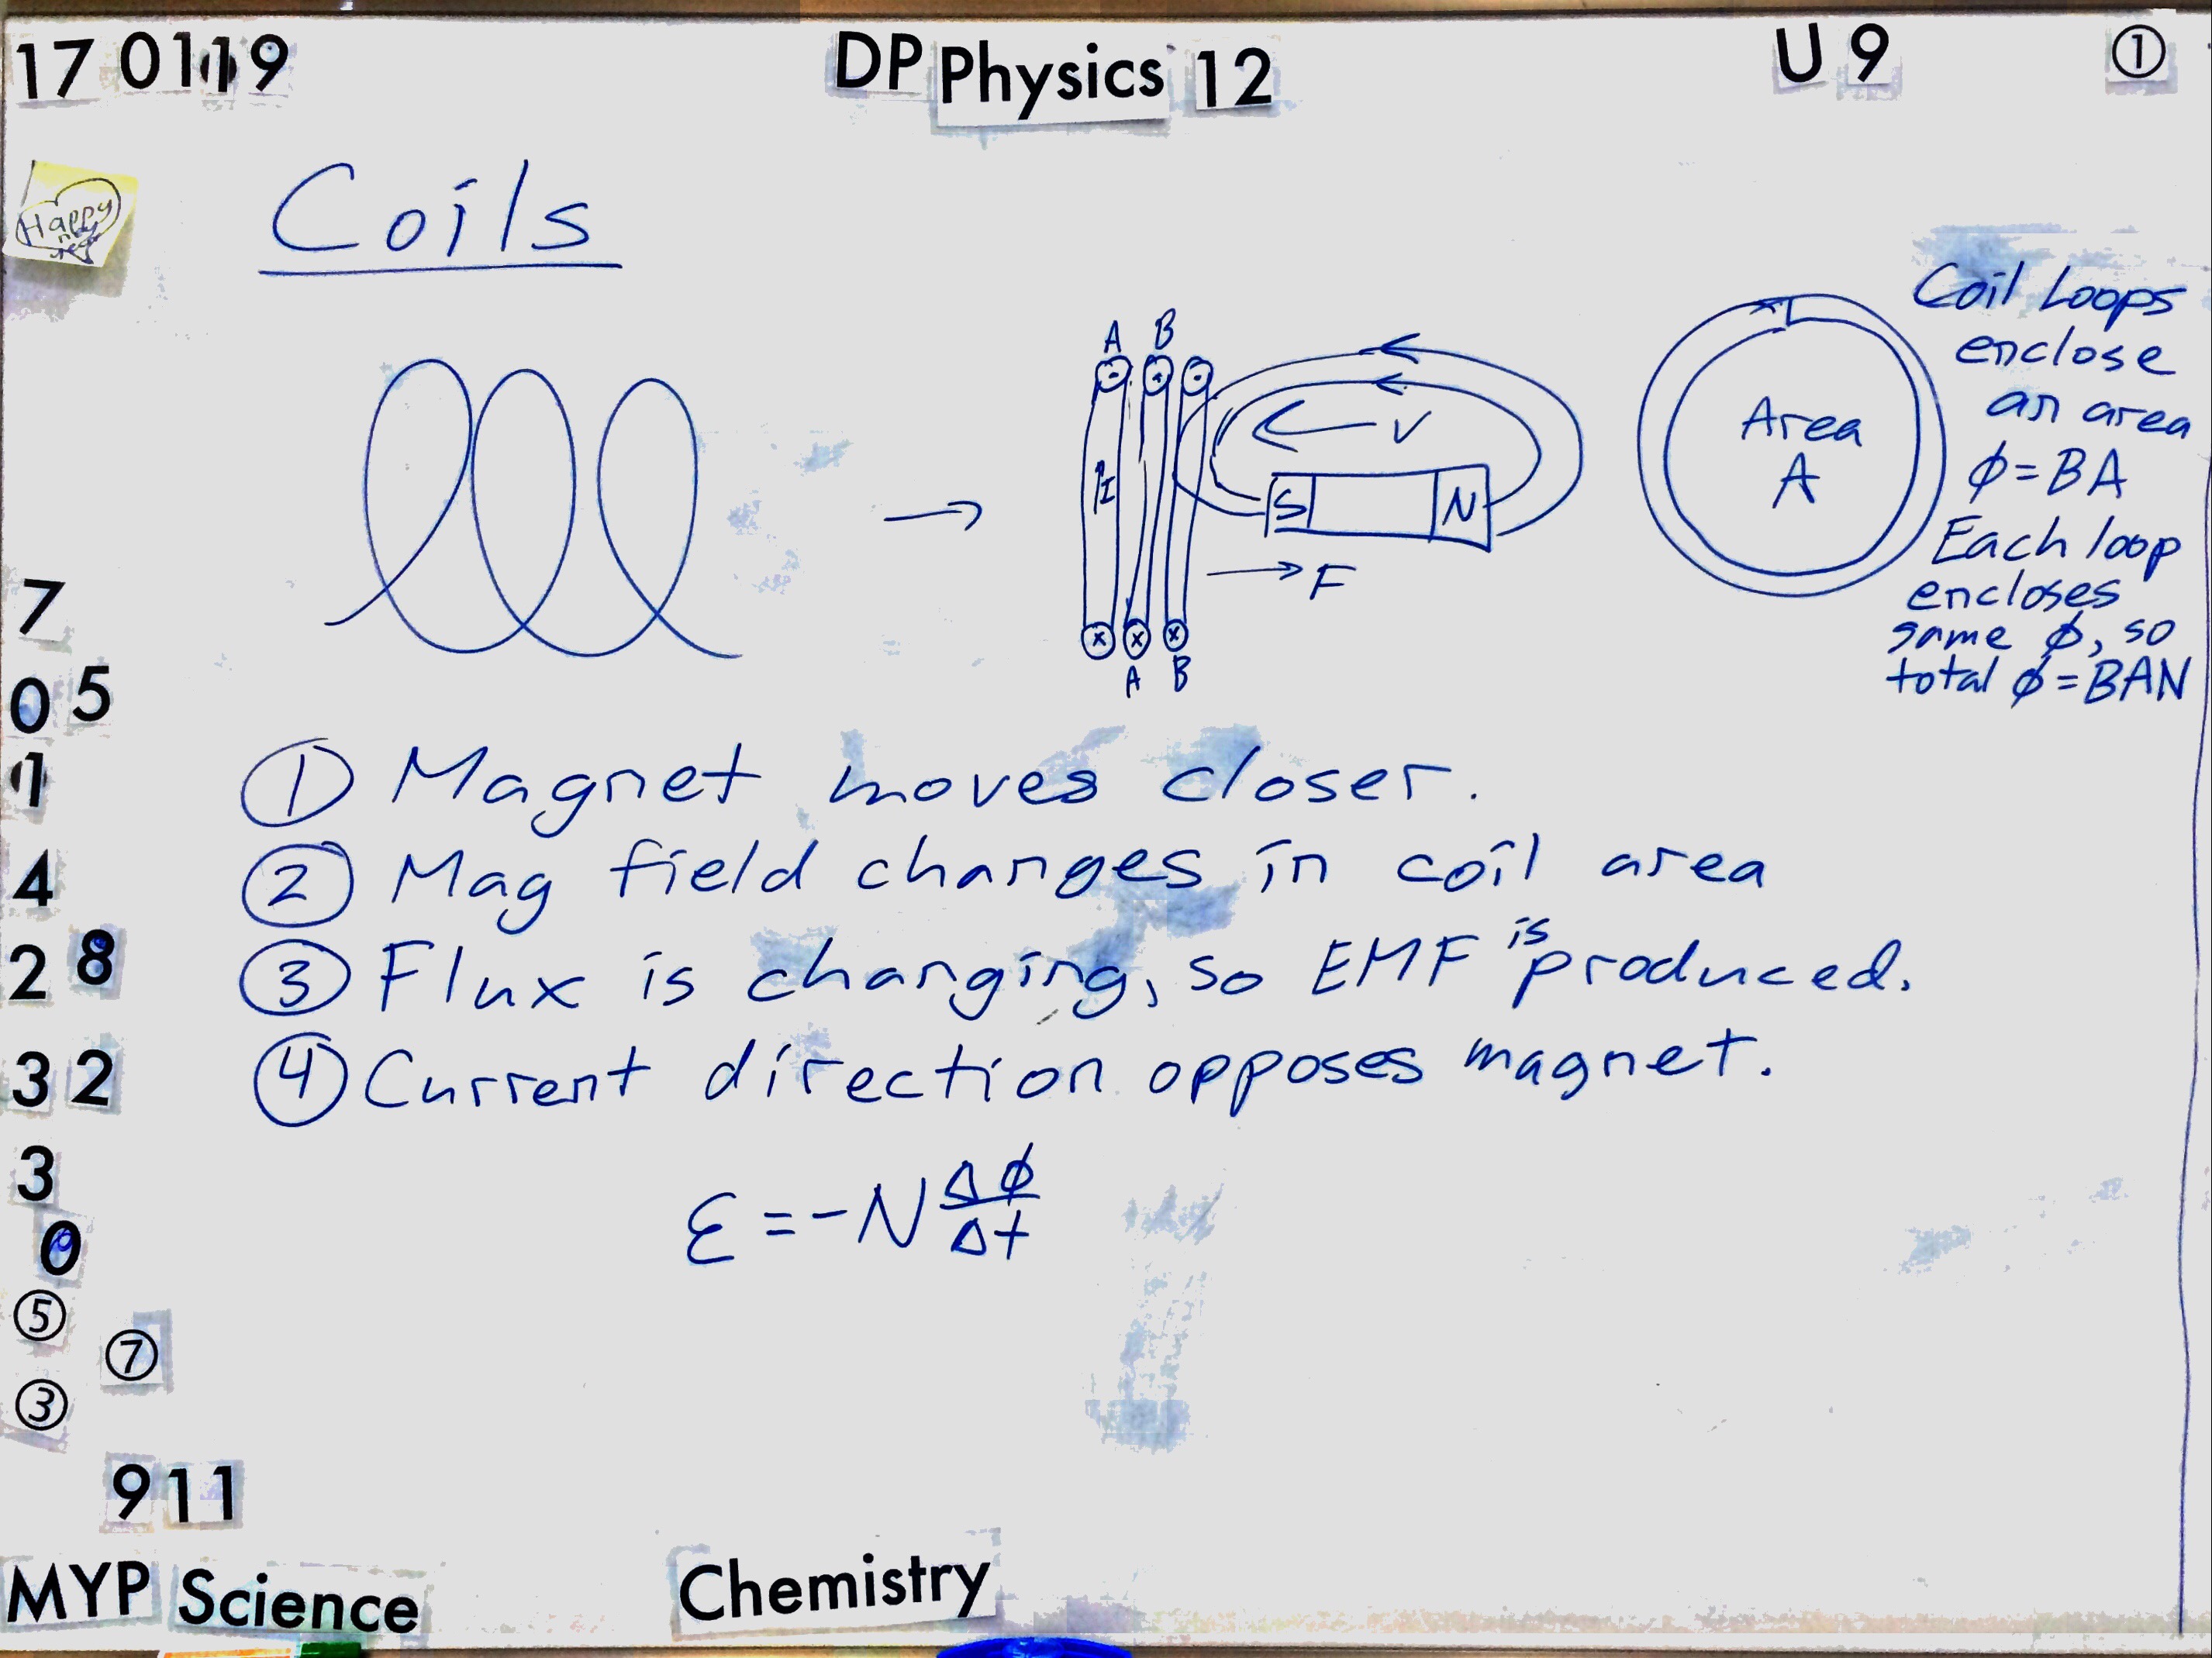 17 0119
DP Physics 12
U 9
①
Happy
new
year
Coils
A B
I
V
S N
F
A B
Area
A
Coil Loops
enclose
an area
ϕ=BA
Each loop
encloses
same ϕ, so
total ϕ=BAN
① Magnet moves closer.
② Mag field changes in coil area
③ Flux is changing, so EMF is produced.
④ Current direction opposes magnet.
ε = -N Δϕ/Δt
7
0 5
1
4
2 8
3 2
3
0
⑤
⑦
③
911
MYP Science
Chemistry